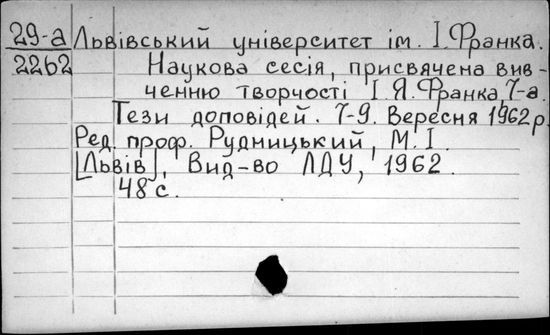 29-а Львівський університет ім. І. Франка.
2262 Наукова сесія, присвячена вив-
ченню творчості І. Я. Франка, 7-а.
Тези доповідей. 7-9. Вересня 1962 р.
Ред. проф. Рудницький, М. І.
[Львів], Вид-во ЛДУ, 1962.
48 с.